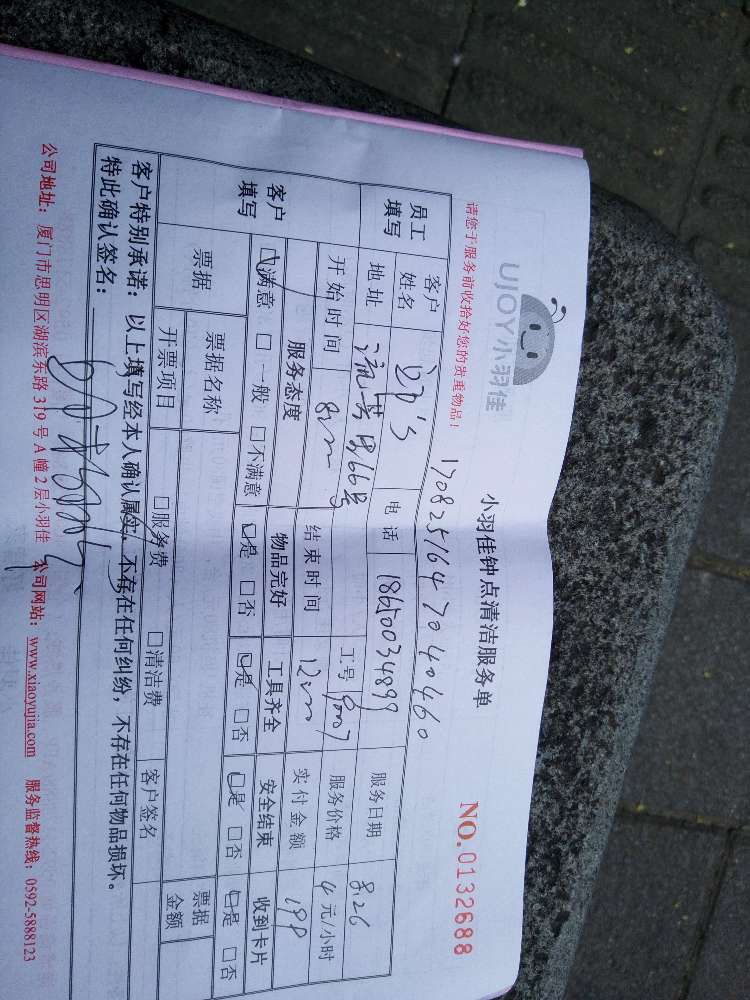 UJOY小羽佳
小羽佳钟点清洁服务单
NO.0132688
请您于服务前收拾好您的贵重物品！
1708251647040460
员工填写 客户姓名 电话 18650034899 服务日期 8.26
地址 66号 工号 9007 服务价格 4元/小时
开始时间 8:00 结束时间 12:00 实付金额 199
客户填写 服务态度 物品完好 工具齐全 安全结束 收到卡片
☑满意 □一般 □不满意 ☑是 □否 ☑是 □否 ☑是 □否 ☑是 □否
票据 票据名称 □服务费 □清洁费 客户签名 票据金额
开票项目
客户特别承诺：以上填写经本人确认属实，不存在任何纠纷，不存在任何物品损坏。
特此确认签名：
公司地址：厦门市思明区湖滨东路319号A幢2层小羽佳 公司网站：www.xiaoyujia.com 服务监督热线：0592-5888123